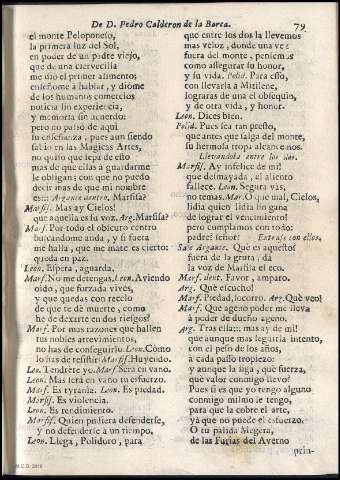 De D. Pedro Calderon de la Barca.
79
el monte Peloponeso,
la primera luz del Sol,
en poder de un padre viejo,
que de una ciervecilla
me diò el primer alimento;
enseñome à hablar, y diòme
de los humanos comercios
noticia sin experiencia,
y memoria sin acuerdo:
pero no parò de aqui
su enseñanza, pues aun siendo
sabio en las Magicas Artes,
no quiso que sepa de esso
mas de que ellas à guardarme
le obligan; con que no puedo
decir mas de que mi nombre
es::: Argante dentro, Marfisa?
Marfis. Mas ay Cielos!
que aquella es su voz. Arg. Marfisa?
Marf. Por todo el obscuro centro
buscandome anda, y si fuera
me halla, que me mate es cierto:
queda en paz.
Leon. Espera, aguarda.
Marf. No me detengas. Leon. Aviendo
oìdo, que forzada vives,
y que quedas con rezelo
de que te dè muerte, como
he de dexarte en dos riesgos?
Marf. Por mas razones que hallen
tus nobles atrevimientos,
no has de conseguirlo. Leon. Còmo
lo has de resistir? Marfis. Huyendo.
Leo. Tendrète yo. Marf. Serà en vano.
Leon. Mas serà en vano tu esfuerzo.
Marf. Es tyranìa. Leon. Es piedad.
Marfis. Es violencia.
Leon. Es rendimiento.
Marfis. Quien pudiera defenderse,
y no defenderse à un tiempo.
Leon. Llega, Polidoro, para
que entre los dos la llevemos
mas veloz, donde una vez
fuera del monte, pensemos
como assegurar su honor,
y su vida. Polid. Para esso,
con llevarla à Mitilene,
lograràs de una el obsequio,
y de otra vida, y honor.
Leon. Dices bien.
Polid. Pues sea tan presto,
que antes que salga del monte,
su hermosa tropa alcancemos.
Llevandola entre los dos.
Marfis. Ay infelice de mi!
que desmayada, el aliento
fallece. Leon. Segura vàs,
no temas. Mar. O què mal, Cielos,
lidia quien lidia sin gana
de lograr el vencimiento!
pero cumplamos con todo:
padre! señor! Entrase con ellos.
Sale Argante. Què es aquesto?
fuera de la gruta, dà
la voz de Marfisa el eco.
Marf. dent. Favor, amparo.
Arg. Què escucho!
Marf. Piedad, socorro. Arg. Què veo!
Marf. Que ageno poder me lleva
à poder de dueño ageno.
Arg. Tras ella::: mas ay de mi!
que aunque mas seguirla intento,
con el peso de los años,
à cada passo tropiezo:
y aunque la siga, què fuerza,
què valor conmigo llevo?
Pues si es que yo tengo alguno
conmigo mismo le tengo,
para que la cobre el arte,
yà que no puede el esfuerzo.
O tu palida Megera,
de las Furias del Averno
prin-